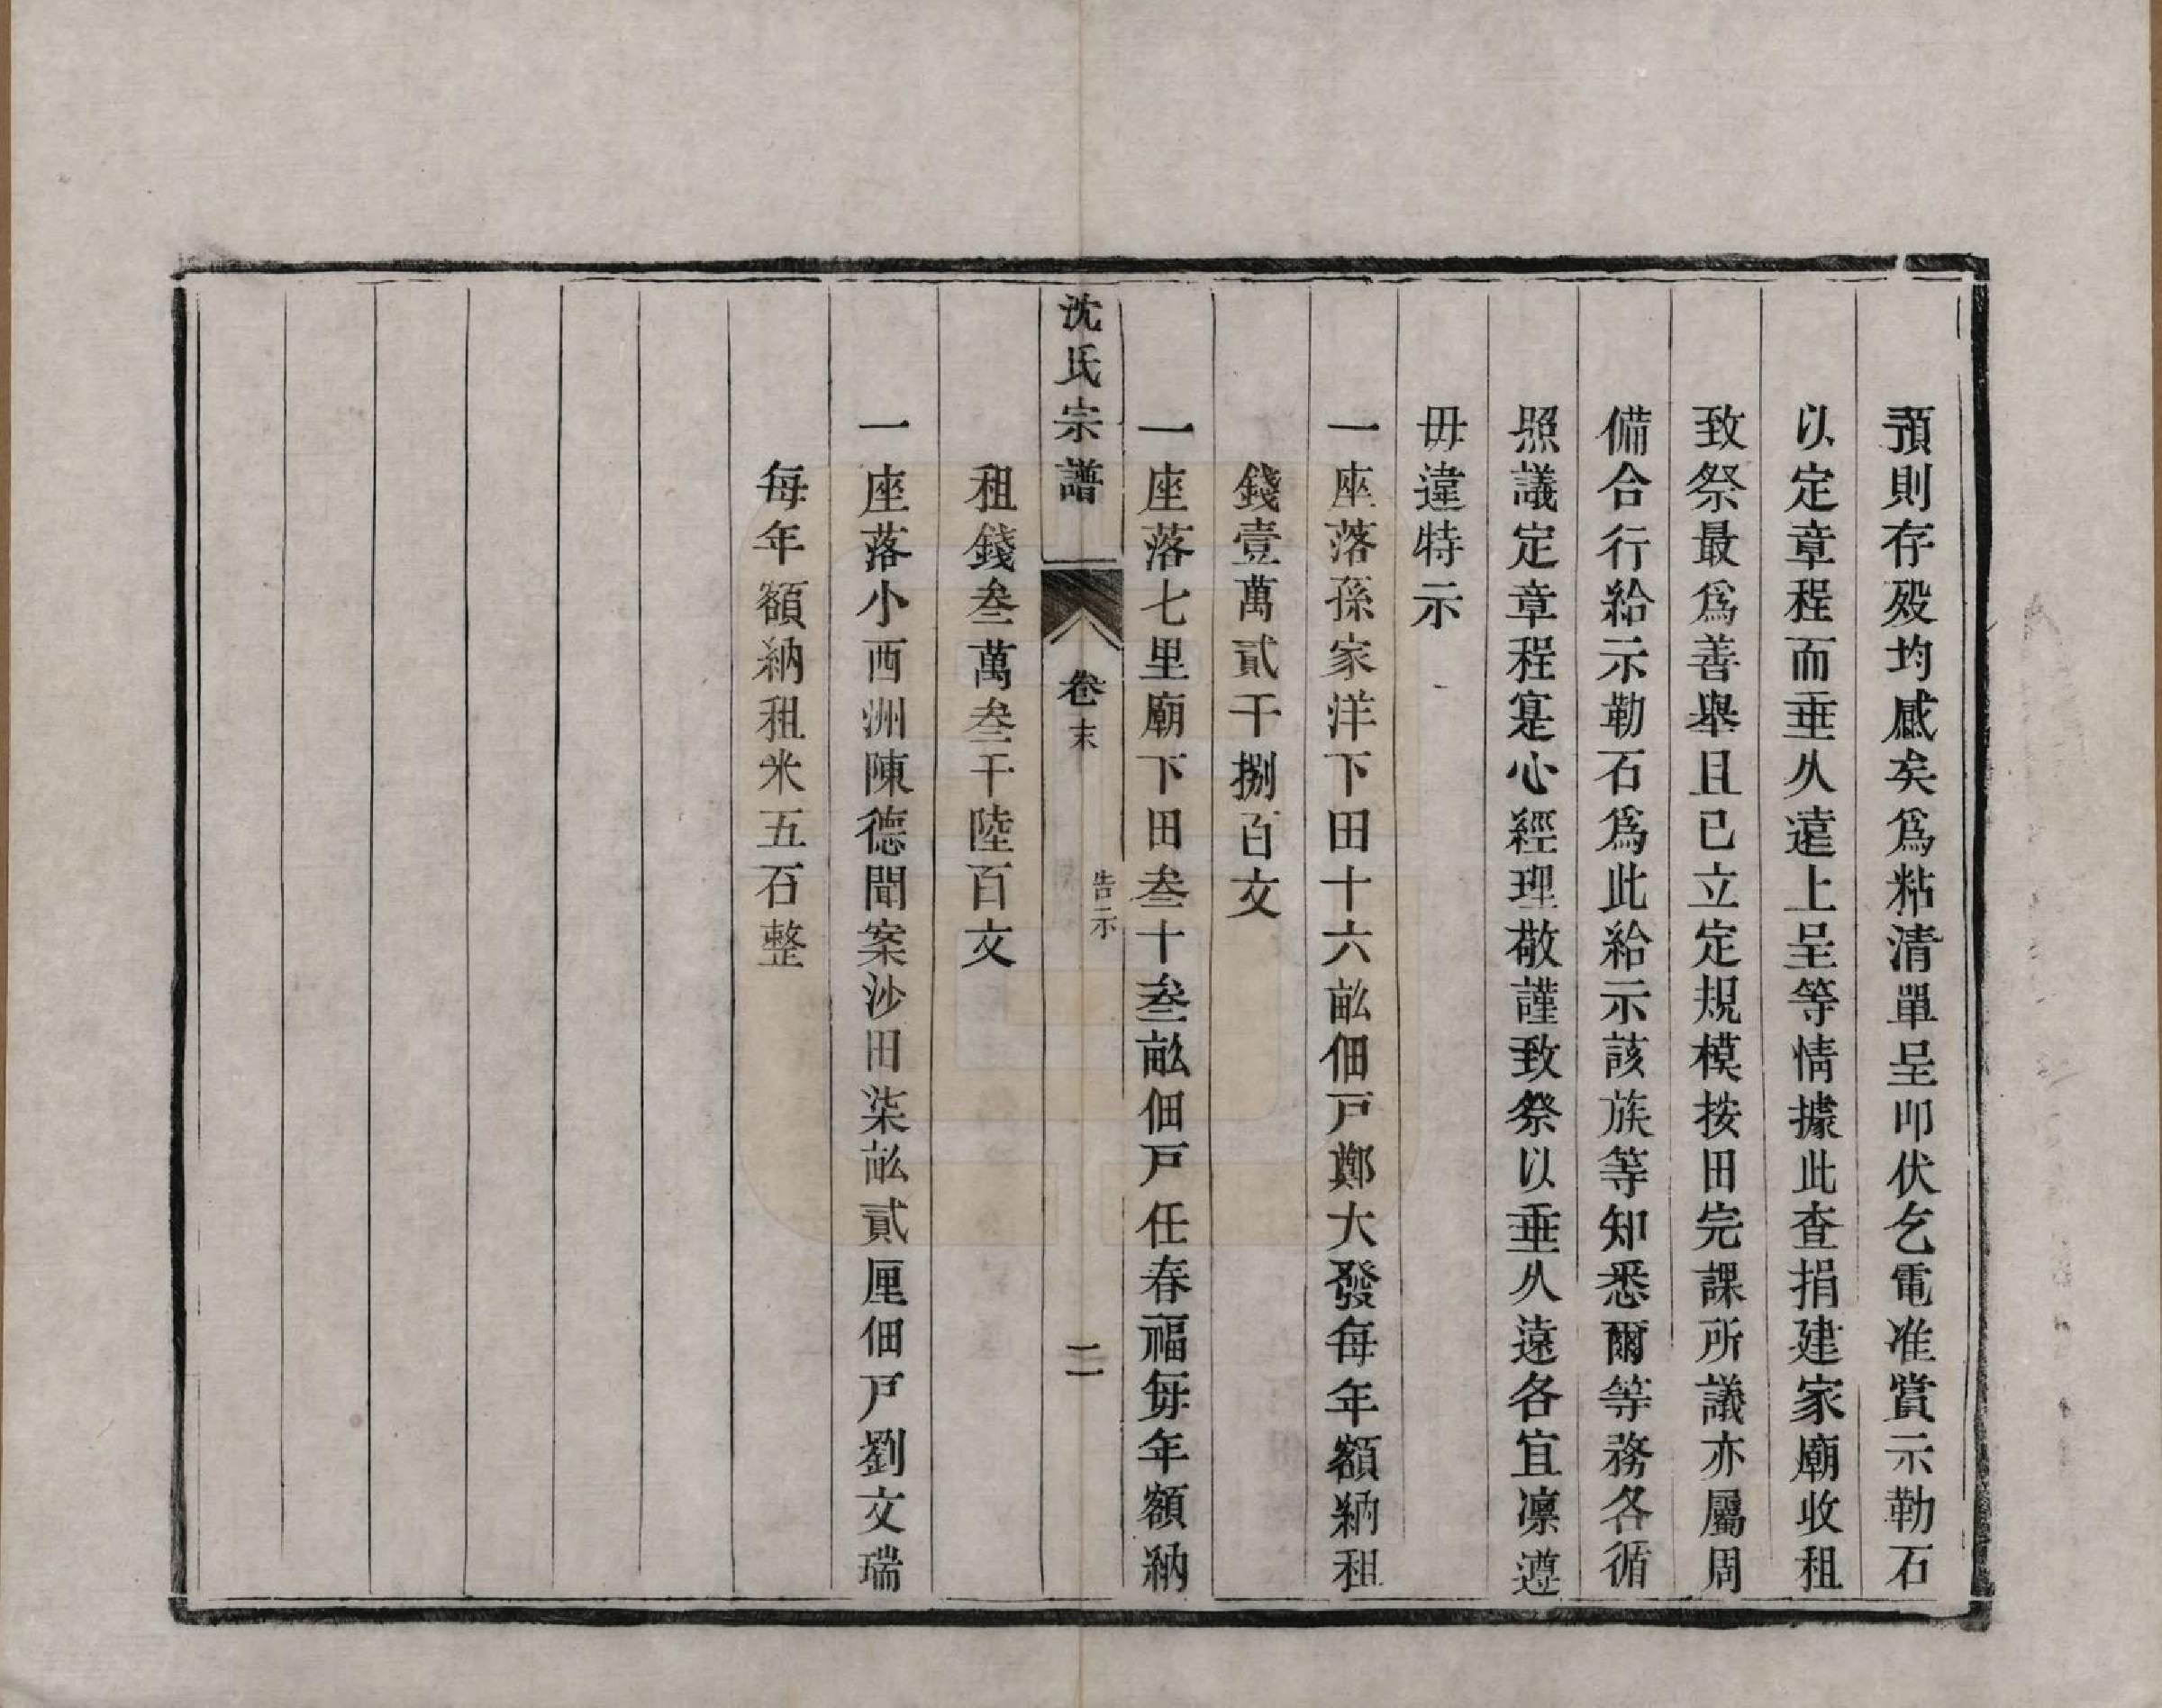 預則存歿均感矣爲粘清單呈叩伏乞電准賞示勒石
以定章程而垂久遠上呈等情據此查捐建家廟收租
致祭最爲善舉且已立定規模按田完課所議亦屬周
備合行給示勒石爲此給示該族等知悉爾等務各循
照議定章程寔心經理敬謹致祭以垂久遠各宜凛遵
毋違特示
一座落孫家洋下田十六畝佃戸鄭大發每年額納租
錢壹萬貳千捌百文
一座落七里廟下田叁十叁畝佃戸任春福每年額納
沈氏宗譜
卷末
告示
二
租錢叁萬叁千陸百文
一座落小西洲陳德聞案沙田柒畝貳厘佃戸劉文瑞
每年額納租米五石整